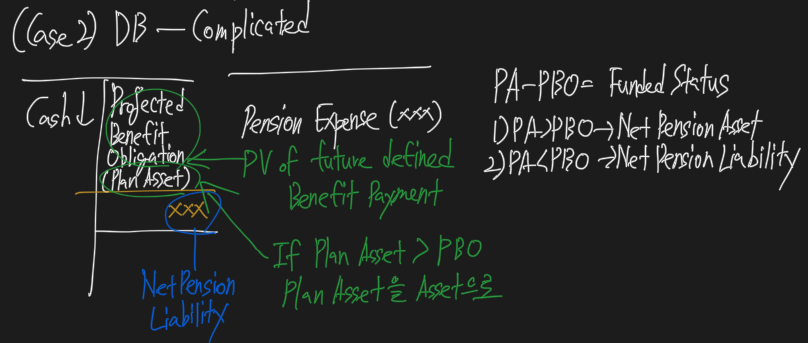 (Case 2) DB — Complicated
Cash↓
Projected
Benefit
Obligation
(Plan Asset)
xxx
Net Pension
Liability
Pension Expense (xxx)
PV of future defined
Benefit Payment
If Plan Asset > PBO
Plan Asset을 Asset으로
PA-PBO = Funded Status
1) PA>PBO → Net Pension Asset
2) PA<PBO → Net Pension Liability